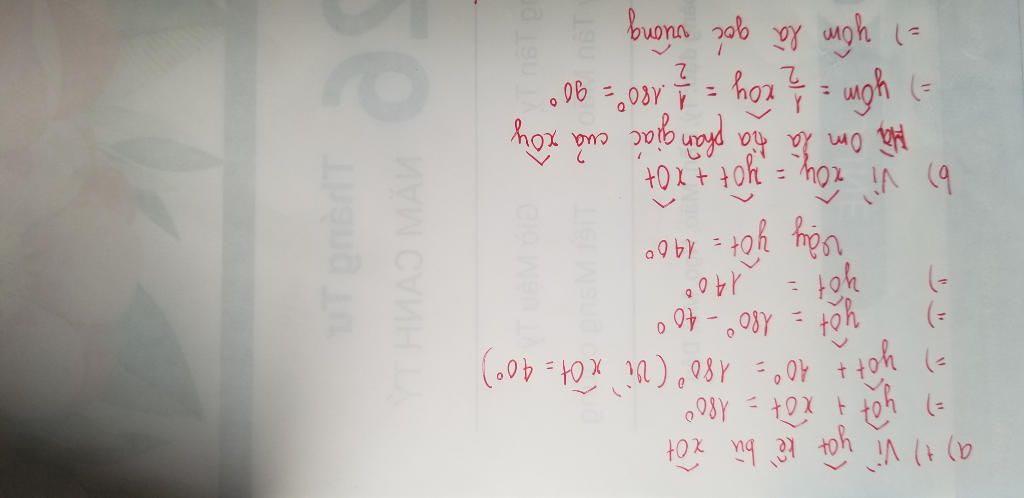 a) +) Vì yOt kề bù xOt
=) yOt + xOt = 180°
=) yOt + 40° = 180° (Vì xOt = 40°)
=) yOt = 180° - 40°
=) yOt = 140°
vậy yOt = 140°
b) Vì xOy = yOt + xOt
Mà Om là tia phân giác của xOy
=) yOm = 1/2 xOy = 1/2 .180° = 90°
=) yOm là góc vuông
26
Tháng Tư
NĂM CANH TÝ
Giờ Mậu Tý